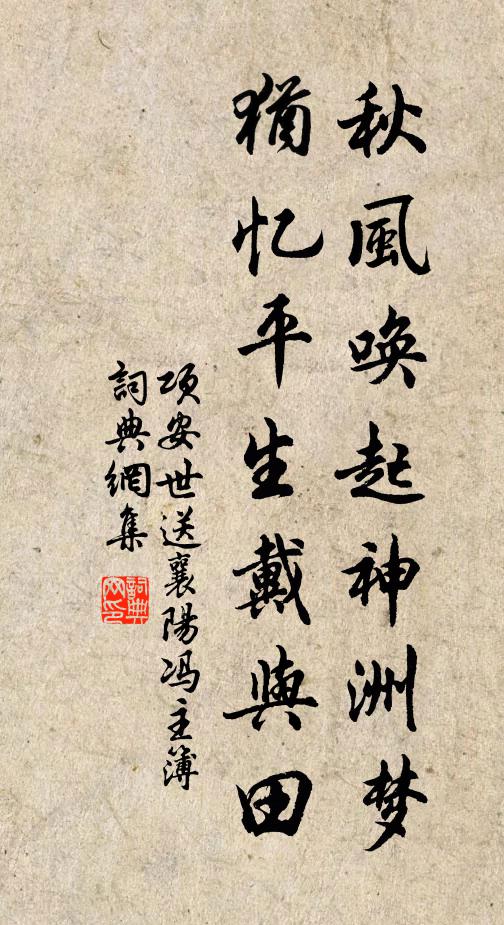 秋風唤起神洲梦
猶忆平生戴與田
项安世送襄陽冯主簿
詞典網集
詞典網印